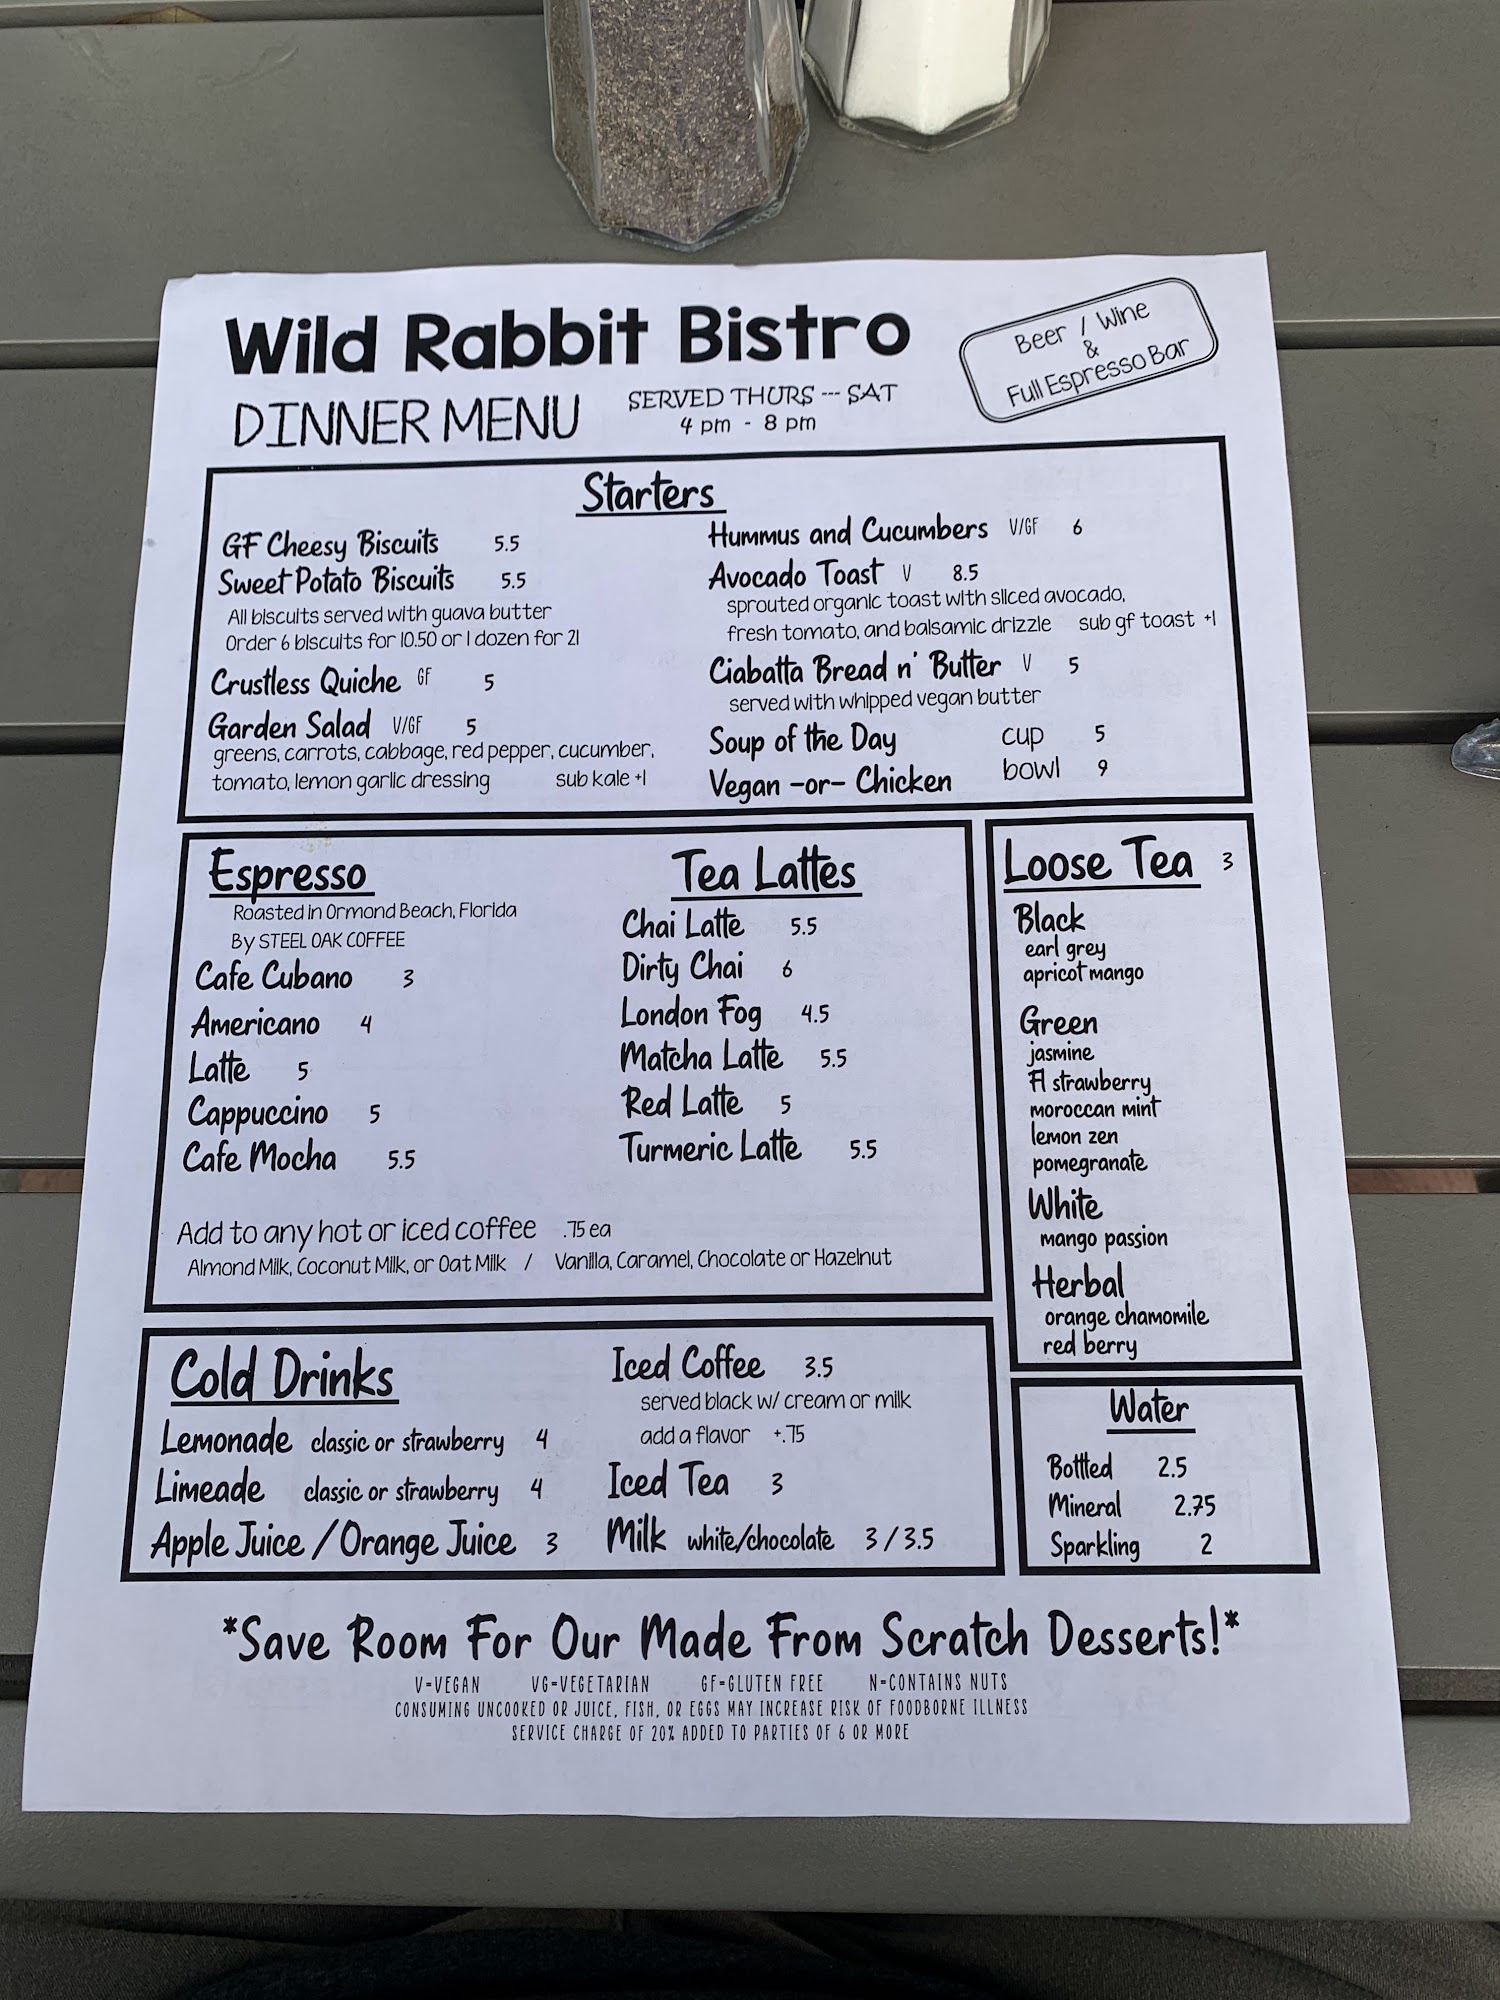 Wild Rabbit Bistro
Beer / Wine
&
Full Espresso Bar
DINNER MENU
SERVED THURS --- SAT
4 pm - 8 pm
Starters
GF Cheesy Biscuits 5.5
Sweet Potato Biscuits 5.5
All biscuits served with guava butter
Order 6 biscuits for 10.50 or 1 dozen for 21
Crustless Quiche GF 5
Garden Salad V/GF 5
greens, carrots, cabbage, red pepper, cucumber,
tomato, lemon garlic dressing sub kale +1
Hummus and Cucumbers V/GF 6
Avocado Toast V 8.5
sprouted organic toast with sliced avocado,
fresh tomato, and balsamic drizzle sub gf toast +1
Ciabatta Bread n' Butter V 5
served with whipped vegan butter
Soup of the Day cup 5
Vegan -or- Chicken bowl 9
Espresso
Roasted in Ormond Beach, Florida
By STEEL OAK COFFEE
Cafe Cubano 3
Americano 4
Latte 5
Cappuccino 5
Cafe Mocha 5.5
Tea Lattes
Chai Latte 5.5
Dirty Chai 6
London Fog 4.5
Matcha Latte 5.5
Red Latte 5
Turmeric Latte 5.5
Add to any hot or iced coffee .75 ea
Almond Milk, Coconut Milk, or Oat Milk / Vanilla, Caramel, Chocolate or Hazelnut
Loose Tea 3
Black
earl grey
apricot mango
Green
jasmine
Fl strawberry
moroccan mint
lemon zen
pomegranate
White
mango passion
Herbal
orange chamomile
red berry
Cold Drinks
Lemonade classic or strawberry 4
Limeade classic or strawberry 4
Apple Juice / Orange Juice 3
Iced Coffee 3.5
served black w/ cream or milk
add a flavor +.75
Iced Tea 3
Milk white/chocolate 3 / 3.5
Water
Bottled 2.5
Mineral 2.75
Sparkling 2
*Save Room For Our Made From Scratch Desserts!*
V=VEGAN VG=VEGETARIAN GF=GLUTEN FREE N=CONTAINS NUTS
CONSUMING UNCOOKED OR JUICE, FISH, OR EGGS MAY INCREASE RISK OF FOODBORNE ILLNESS
SERVICE CHARGE OF 20% ADDED TO PARTIES OF 6 OR MORE